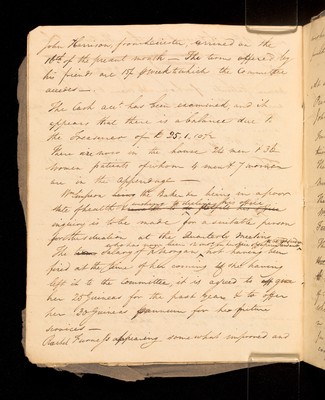 John Harrison, from Leicester, arrived on the
16th of the present month — The terms offered by
his friends are 15/ p week to which the committee
accedes —.
The Cash acct. has been examined, and it
appears that there is a balance due to
the Treasurer of £ 25.1.10½
There are now in the house 32 men & 32
women patients of whom 4 men & 7 women
are in the appendage —
Simpson the Baker being in a poor
state of health wishing to decline his office
inquiry is to be made for a suitable person
for this situation at the Quarterly Meeting
The salary of not having been
fixed at the time of her coming & she having
left it to the Committee, it is agreed to
her 25 Guineas for the past year & to offer
her 30 Guineas p annum for her future
services —
Rachel appearing somewhat improved and